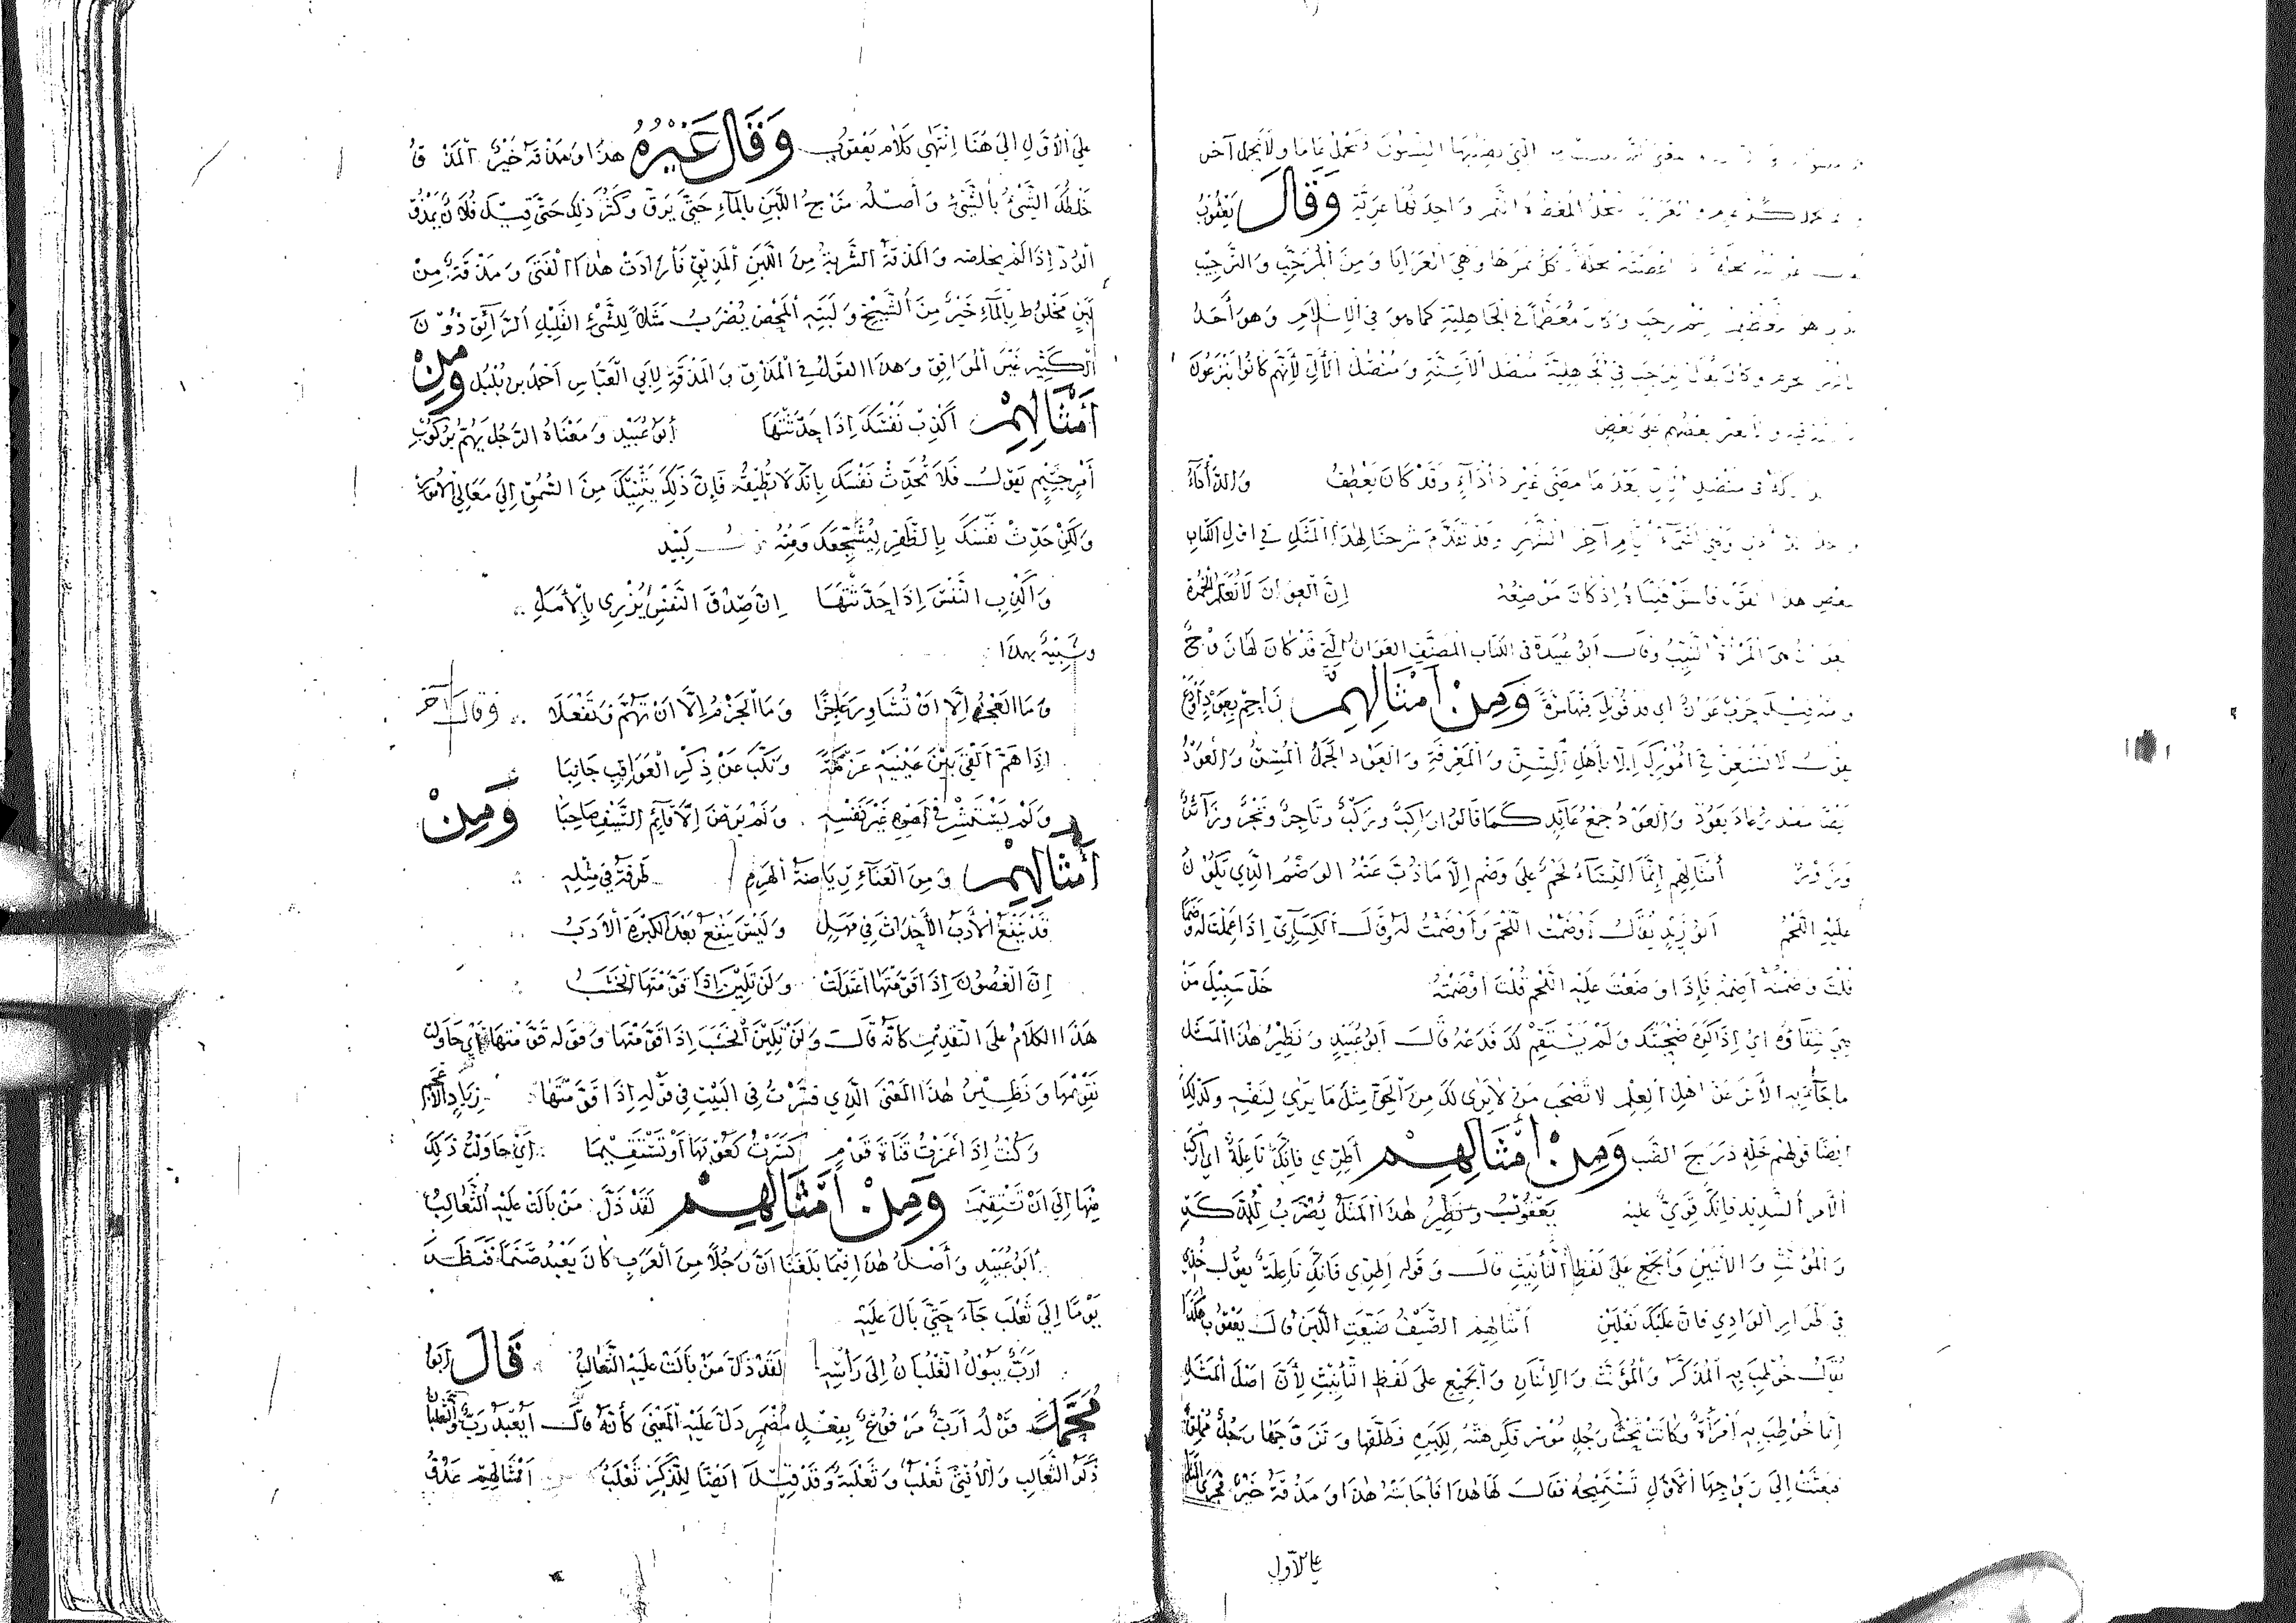 التي يصيبها السنون تحمل عاما ولا تحمل آخر
النخل المعطاة الثمر واحدتها عرية وَقَالَ يَعْقُوبُ
نخلة كل ثمرها وهي العرايا وَمِنَ المُرَجَّبِ وَالتَّرجِيْبِ
هو مُعَظَّمًا في الجَاهِلِيَّةِ كما هو في الإِسْلَامِ وَهو أَحَدُ
وكان يقال لرجب في الجاهلية مُنْصِلُ الأسِنَّةِ وَمُنْصِلُ الأَلِّ لأَنَّهم كَانُوا يَنْزِعُونَ
بعضهم على بعض
في منصل الأل بَعْدَ مَا مَضَى غَيْرَ دَأْدَاءٍ وَقَدْ كَانَ يَعْطَبُ وَالدَّأْدَاءُ
أيام آخر الشهر وقد تقدم شرحنا لهذا المثل في اول الكتاب
هذا القول فاستوفيناه إذ كان موضعه إِنَّ العَوَانَ لَا تُعَلَّمُ الخِمْرَةَ
هي المرأة الثيب وقال ابو عبيدة في الكتاب المصنف العوان التي قد كان لها زوجٌ
ومنه قيل حرب عوان اي قد قوتل فيها مرة وَمِنْ أَمْثَالِهِمْ زَاحِمْ بِعَوْدٍ أَوْ دَعْ
يقول لا تستعن في أمورك إلا بأهل السِّنِّ وَالمَعْرِفَةِ وَالعَوْد الجَمَلُ المُسِنُّ وَالعَوْدُ
مصدر عاد يعود وَالعَوْدُ جمع عائد كما قالوا راكبٌ وركبٌ وتاجرٌ وتجرٌ وزائرٌ
وَزَوْرٌ أَمْثَالِهِم إِنَّمَا النِّسَاءُ لحم على وضم إلا ما ذُبَّ عَنْهُ الوَضَمُ الَّذِي يَكُوْنُ
عَلَيْهِ اللَّحْمُ أَبُو زَيْدٍ يُقَالُ أَوْضَمْتُ اللَّحْمَ وَأَوْضَمْتُ لَهُ وَقَالَ الكِسَائِيّ إِذَا عَمِلْتَ لَهُ وَضَمًا
قُلْتَ وَضَمْتُهُ أَضِمُهُ فَإِذَا وَضَعْتَ عَلَيْهِ اللَّحْمَ قُلْتَ أَوْضَمْتُهُ خَلِّ سَبِيْلَ مَنْ
وَهَى سِقَاؤُهُ أي إذا كره صُحْبَتَكَ وَلَمْ يَسْتَقِمْ لَكَ فَدَعْهُ قَالَ أَبُو عُبَيْدٍ وَنَظِيْرُ هٰذَا المَثَلِ
ما جَاءَ به الأَثَرُ عَنْ اهل العِلْمِ لا تَصْحَبْ مَنْ لَا يَرَى لَكَ مِنَ الحَقِّ مِثْلَ مَا يَرَى لِنَفْسِهِ وكذلك
ايضًا قولهم خَلِّهِ دَرَجَ الضَّبِّ وَمِنْ أَمْثَالِهِمْ أَطِرِّي فَإِنَّكِ نَاعِلَةٌ أي اركب
الأمر الشديد فإنك قويٌّ عليه يَعْقُوْبُ وَنَظِيْرُ هٰذَا المَثَلُ يُضْرَبُ لِلْمُذَكَّرِ
وَالمُؤَنَّثِ وَالاثنين وَالجَمْعِ عَلَى لَفْظِ التَّأْنِيْثِ قَالَ وَقَوْله أَطِرِّي فَإِنَّكِ نَاعِلَةٌ يقول خُذِي
في طُرَرِ الوَادِي فَإِنَّ عَلَيْكِ نَعْلَيْنِ أَمْثَالِهِم الصَّيْفَ ضَيَّعَتِ اللَّبَنَ قَالَ يَعْقُوبُ هكذا
يُقَالُ خُوطِبَ بِهِ المُذَكَّرُ وَالمُؤَنَّثُ وَالاِثْنَانِ وَالجَمِيْعُ عَلَى لَفْظِ التَّأْنِيْثِ لأَنَّ أَصْلَ المَثَلِ
إِنَّمَا خُوْطِبَ بِهِ امْرَأَةٌ وَكَانَتْ تَحْتَ رَجُلٍ مُوْسِرٍ فَكَرِهَتْهُ لِكِبَرِهِ فَطَلَّقَهَا وَتَزَوَّجَهَا رَجُلٌ مُمْلِقٌ
فبَعَثَتْ إِلَى زَوْجِهَا الأَوَّلِ تَسْتَمِيْحُهُ فَقَالَ لَهَا هٰذَا فَأَجَابَتْهُ هٰذَا وَمَذْقَةٌ خَيْرٌ فجرى المثل
على الأول
عَلَى الأَوَّلِ إِلَى هُنَا انْتَهَى كَلَامُ يَعْقُوْبَ وَقَالَ غَيْرُهُ هذا وَمَذْقَةٌ خَيْرٌ المَذْقُ
خَلْطُكَ الشَّيْءَ بِالشَّيْءِ وَأَصْلُهُ مَزْجُ اللَّبَنِ بِالمَاءِ حَتَّى يَرِقَّ وَكَثُرَ ذلِكَ حَتَّى قِيْلَ فُلَانٌ يَمْذُقُ
الوُدَّ إِذَا لَمْ يخلصه وَالمَذْقَةُ الشَّرْبَةُ مِنَ اللَّبَنِ المَذِيْقِ فَأَرَادَتْ هٰذَا الفَتَى وَمَذْقَةٌ مِنْ
لَبَنٍ مَخْلُوطٍ بِالمَاءِ خَيْرٌ مِنَ الشَّيْخِ وَلَبَنِهِ المَحْضِ يُضْرَبُ مَثَلًا لِلشَّيْءِ القَلِيْلِ الرَّائِقِ دُوْنَ
الكَثِيْرِ غَيْرِ المُوَافِقِ وَهذَا القَوْلُ فِي المَذْقِ وَالمَذْقَةِ لِأَبِي العَبَّاسِ أَحْمَدَ بن بُلْبُلٍ وَمِنْ
أَمْثَالِهِمْ أَكْذِبْ نَفْسَكَ إِذَا حَدَّثْتَهَا أَبُو عُبَيْدٍ وَمَعْنَاهُ الرَّجُلُ يَهُمُّ بِرُكُوبِ
أَمْرٍ جَسِيْمٍ يَقُولُ فَلَا تُحَدِّثْ نَفْسَكَ بِأَنَّكَ لَا تُطِيْقُهُ فَإِنَّ ذٰلِكَ يُثَبِّطُكَ مِنَ السُّمُوِّ إِلَى مَعَالِي الأُمُورِ
وَلٰكِنْ حَدِّثْ نَفْسَكَ بِالظَّفَرِ لِيُشَجِّعَكَ وَمِنْهُ لَبِيْد
وَاكْذِبِ النَّفْسَ إِذَا حَدَّثْتَهَا إِنَّ صِدْقَ النَّفْسِ يُزْرِي بِالأَمَلِ
وَشَبِيْهٌ بهٰذَا
وَمَا العَجْزُ إِلَّا أَنْ تُشَاوِرَ عَاجِزًا وَمَا الحَزْمُ إِلَّا أَنْ تَهُمَّ وَتَفْعَلَا وَقَالَ آخَر
إِذَا هَمَّ أَلْقَى بَيْنَ عَيْنَيْهِ عَزْمَهُ وَنَكَّبَ عَنْ ذِكْرِ العَوَاقِبِ جَانِبَا
وَلَمْ يَسْتَشِرْ فِي أَمْرِهِ غَيْرَ نَفْسِهِ وَلَمْ يَرْضَ إِلَّا قَائِمَ السَّيْفِ صَاحِبَا وَمِنْ
أَمْثَالِهِمْ وَمِنَ العَنَاءِ رِيَاضَةُ الهَرِمِ طَرَفَةُ فِي مِثْلِهِ
قَدْ يَنْفَعُ الأَدَبُ الأَحْدَاثَ فِي مَهَلٍ وَلَيْسَ يَنْفَعُ بَعْدَ الكَبْرَةِ الأَدَبُ
إِنَّ الغُصُوْنَ إِذَا قَوَّمْتَهَا اعْتَدَلَتْ وَلَنْ تَلِيْنَ إِذَا قَوَّمْتَهَا الخَشَبُ
هَذَا الكَلَامُ عَلَى التَّقْدِيْمِ كَأَنَّهُ قَالَ وَلَنْ تَلِيْنَ الخَشَبُ إِذَا قَوَّمْتَهَا وَقَوْله قَوَّمْتَهَا أَيْ حَاوَلْتَ
تَقْوِيْمَهَا وَنَظِيْرُ هٰذَا المَعْنَى الَّذِي فَسَّرْتُ فِي البَيْتِ فِي قَوْلِهِ إِذَا قَوَّمْتَهَا زِيَادُ الأَعْجَم
وَكُنْتُ إِذَا غَمَزْتُ قَنَاةَ قَوْمٍ كَسَرْتُ كُعُوْبَهَا أَوْ تَسْتَقِيْمَا أَيْ حَاوَلْتُ ذٰلِكَ
مِنْهَا إِلَى أَنْ تَسْتَقِيْمَ وَمِنْ أَمْثَالِهِمْ لَقَدْ ذَلَّ مَنْ بَالَتْ عَلَيْهِ الثَّعَالِبُ
أَبُو عُبَيْدٍ وَأَصْلُ هٰذَا فِيْمَا بَلَغَنَا أَنَّ رَجُلًا مِنَ العَرَبِ كَانَ يَعْبُدُ صَنَمًا فَنَظَرَ
يَوْمًا إِلَى ثَعْلَبٍ جَاءَ حَتَّى بَالَ عَلَيْهِ
أَرَبٌّ يَبُوْلُ الثَّعْلُبَانُ إِلَى رَأْسِهِ لَقَدْ ذَلَّ مَنْ بَالَتْ عَلَيْهِ الثَّعَالِبُ قَالَ أَبُو
مُحَمَّدٍ قَوْلُهُ أَرَبٌّ مَرْفُوْعٌ بِفِعْلٍ مُضْمَرٍ دَلَّ عَلَيْهِ المَعْنَى كَأَنَّهُ قَالَ أَيُعْبَدُ رَبٌّ وَالثُّعْلُبَانُ
ذَكَرُ الثَّعَالِبِ وَالأُنْثَى ثَعْلَبٌ وَثَعْلَبَةٌ وَقَدْ قِيْلَ أَيْضًا لِلذَّكَرِ ثَعْلَبٌ أَمْثَالِهِمْ عَدُوُّ